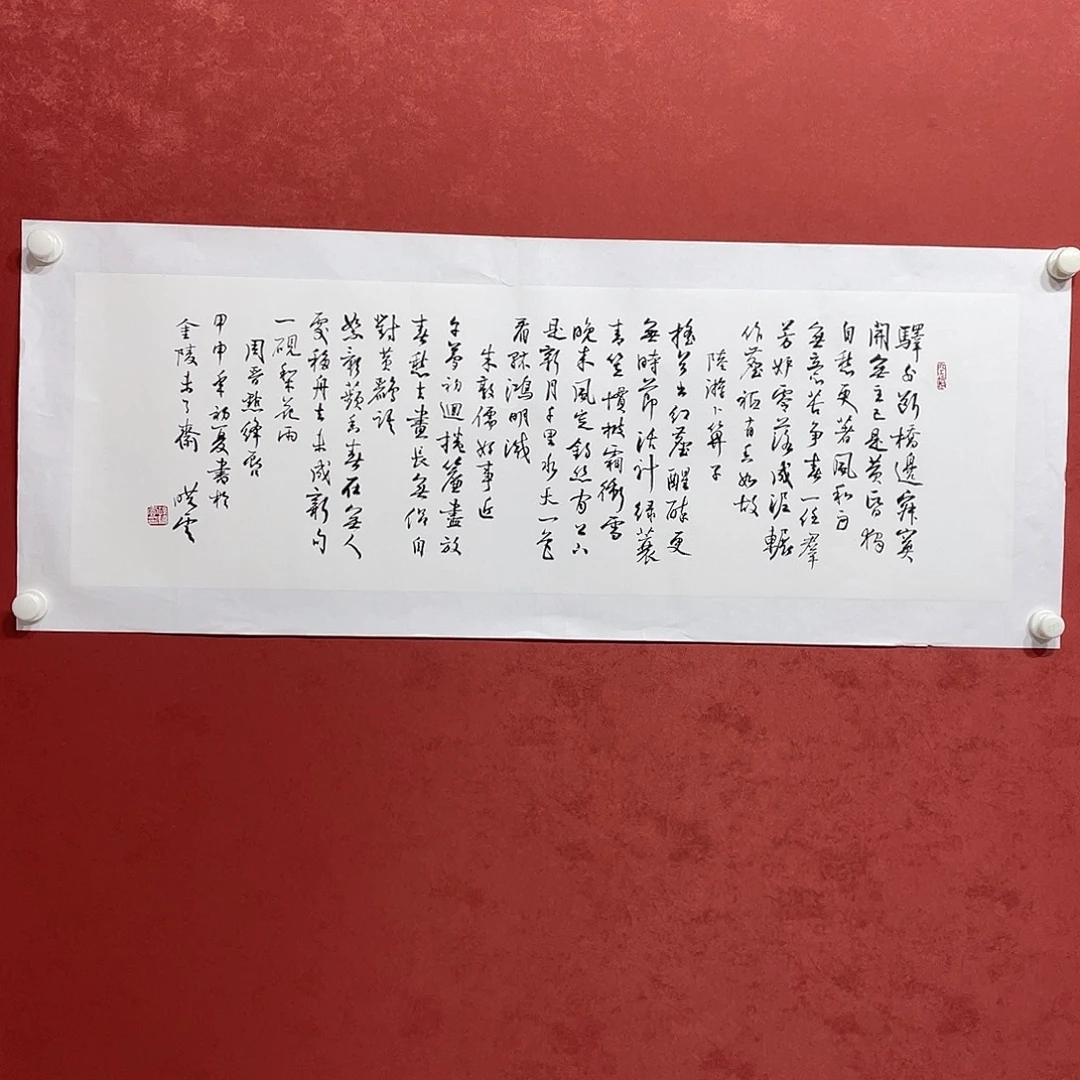 驛外斷橋邊寂寞
開無主已是黃昏獨
自愁更著風和雨
無意苦爭春一任羣
芳妒零落成泥輾
作塵祗有香如故
陸游卜算子
搖首出紅塵醒醉更
無時節活計綠蓑
青笠慣披霜衝雪
晚來風定釣絲閒上下
是新月千里水天一色
看孤鴻明滅
朱敦儒好事近
午夢初迴捲簾盡放
春愁去晝長無侶自
對黃鸝語
絮影蘋香春在無人
處移舟去未成新句
一硯梨花雨
周晉點絳唇
甲申年初夏書於
金陵未了齋 雲